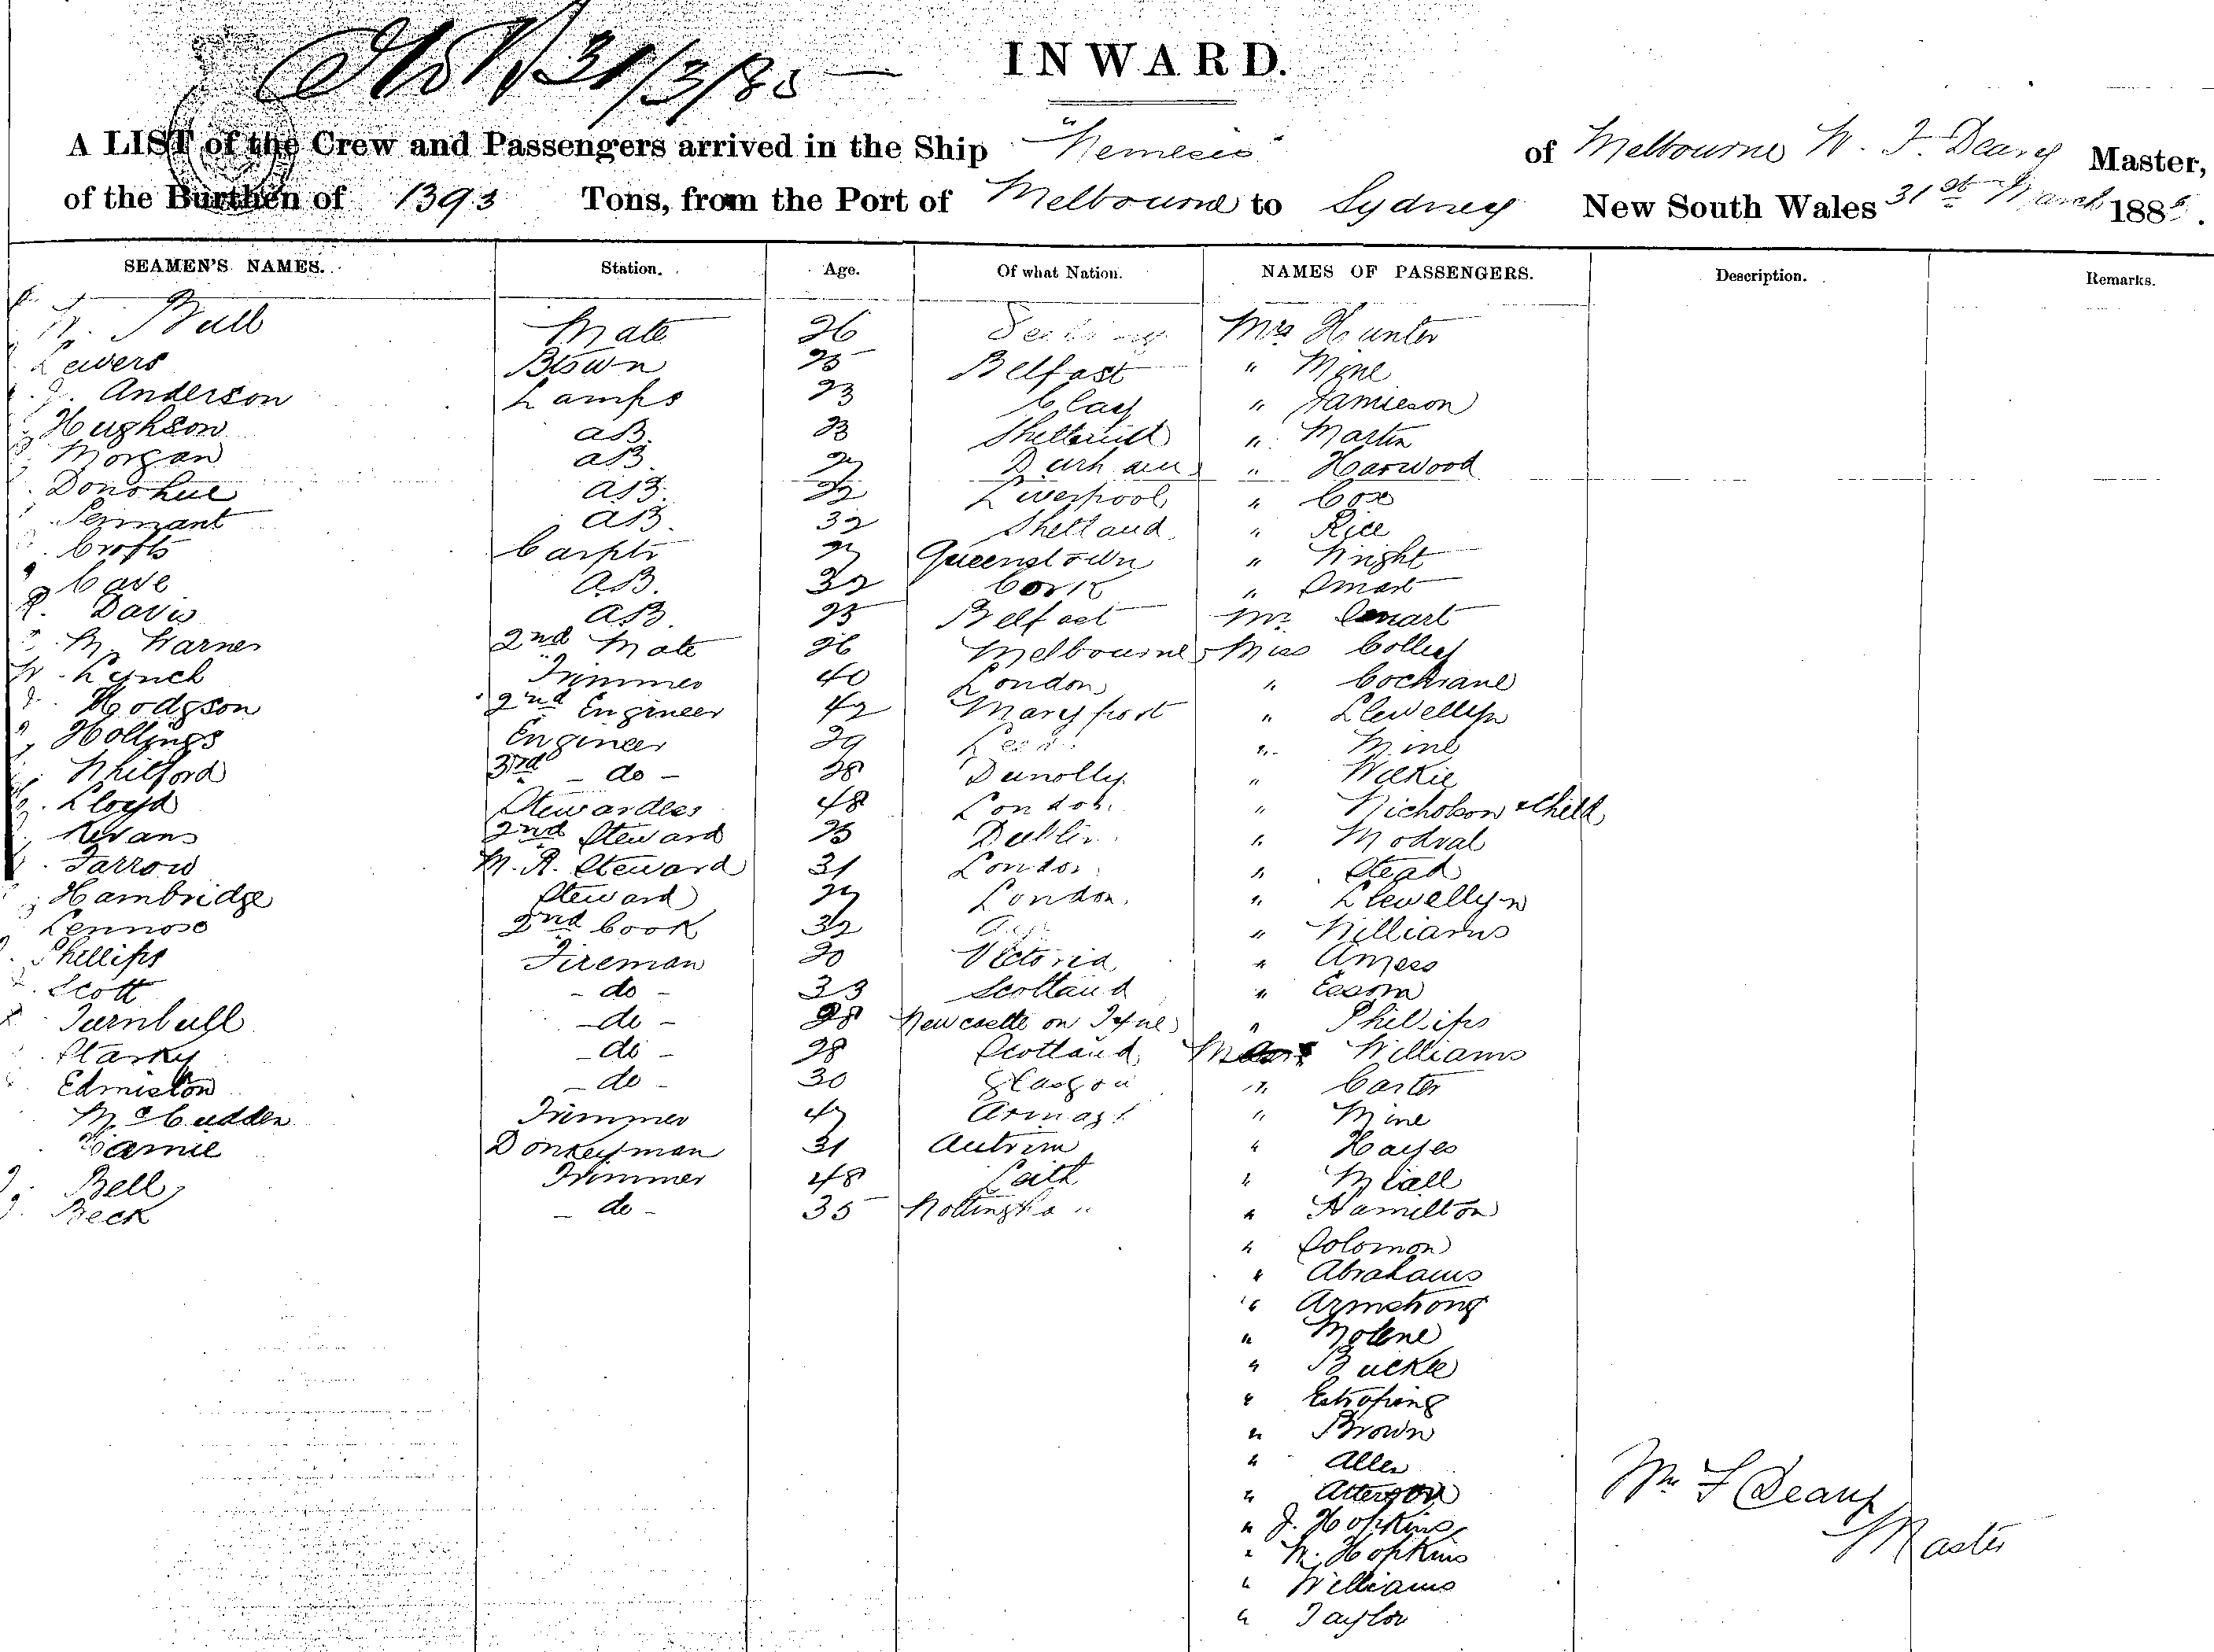 31/3/85
INWARD.
A LIST of the Crew and Passengers arrived in the Ship "Nemesis" of Melbourne W. F. Deary Master,
of the Burthen of 1393 Tons, from the Port of Melbourne to Sydney New South Wales 31st March 1885.
SEAMEN'S NAMES. Station. Age. Of what Nation. NAMES OF PASSENGERS. Description. Remarks.
Bull Mate 26 Mrs Hunter
Lewers Btswn 25 Belfast " Mine
Anderson Lamps 23 " Jamieson
Hughson aB. 23 " Martin
Morgan aB. Durham " Harwood
Donohue aB. 32 Liverpool " Cox
Pennant aB. 32 Shetland " Rice
Crofts Carptr Queenstown " Wright
Cave aB. 32 Cork " Smart
R. Davis aB. 25 Belfast Mr Smart
Warner 2nd Mate 26 Melbourne Miss Colley
W. Lynch Trimmer 40 London " Cochrane
Hodgson 2nd Engineer 42 Maryport " Llewellyn
Hollings Engineer 29 " Mine
Whilford 3rd - do - 28 Dunolly " Wilkie
Lloyd Stewardess 48 London " Nicholson & Child
Kevans 2nd Steward 25 Dublin " Modval
Farrow M. R. Steward 31 London " Stead
Hambridge Steward London " Llewellyn
Lennox 2nd Cook 32 " Williams
Phillips Fireman 30 Victoria "
Scott - do - 33 Scotland "
Turnbull - do - 28 Newcastle on Tyne " Phillips
Starky - do - 28 Scotland Williams
Edmiston - do - 30 Glasgow " Carter
McCudden Trimmer Armagh " Mine
Jamie Donkeyman 31 Antrim " Hayes
Bell Trimmer 48 Leith " Miall
J. Beck - do - 35 Nottingha " Hamilton
" Solomon
" Abrahams
" Armstrong
" Molene
" Buckle
"
" Brown
" Allen
" Atterson
" J. Hopkins
" W. Hopkins
" Williams
" Taylor
Wm F Deary
Master